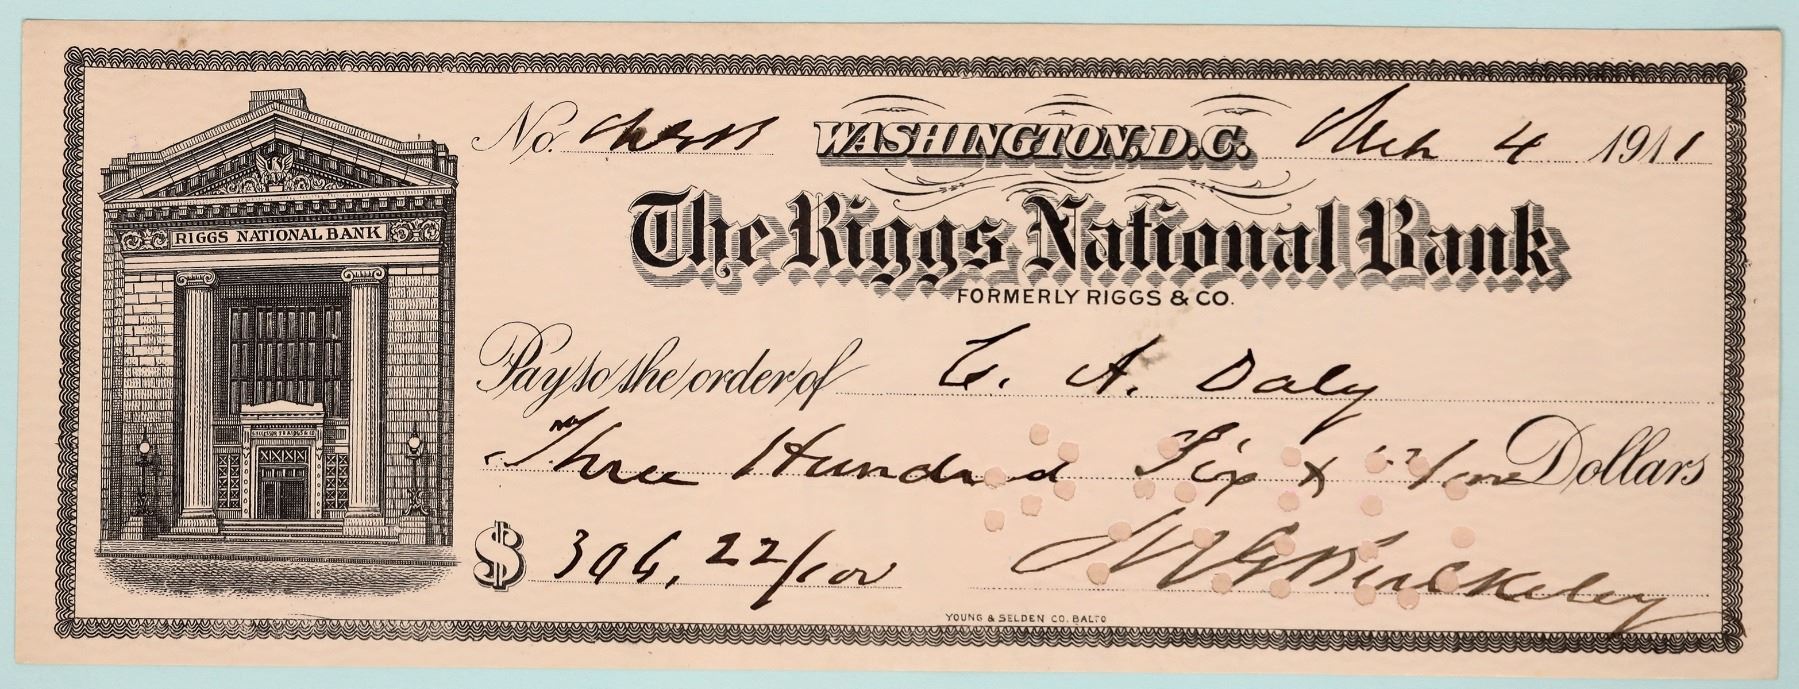 No. WASHINGTON, D.C. Mch 4 1911
The Riggs National Bank
FORMERLY RIGGS & CO.
RIGGS NATIONAL BANK
Pay to the order of C. A. Daly
Three Hundred Six & 22/100 Dollars
$ 306, 22/100
YOUNG & SELDEN CO. BALTO